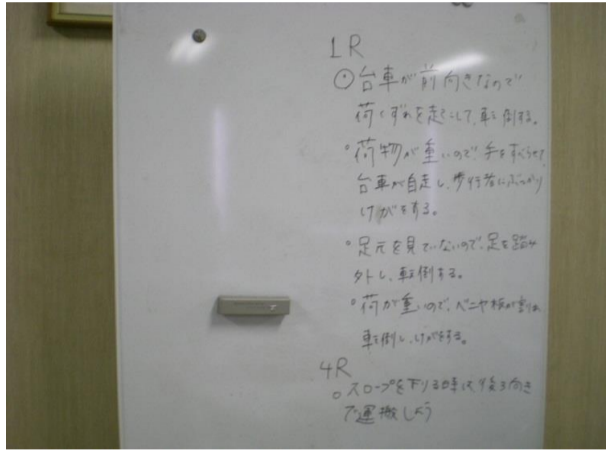 1R
⊙台車が前向きなので
荷くずれを起こして、転倒する。
°荷物が重いので、手をすべらせて、
台車が自走し、歩行者にぶつかり
けがをする。
°足元を見ていないので、足を踏み
外し、転倒する。
°荷が重いので、ベニヤ板が割れ
転倒し、けがをする。
4R
○スロープを下りる時は、後ろ向き
で運搬しよう